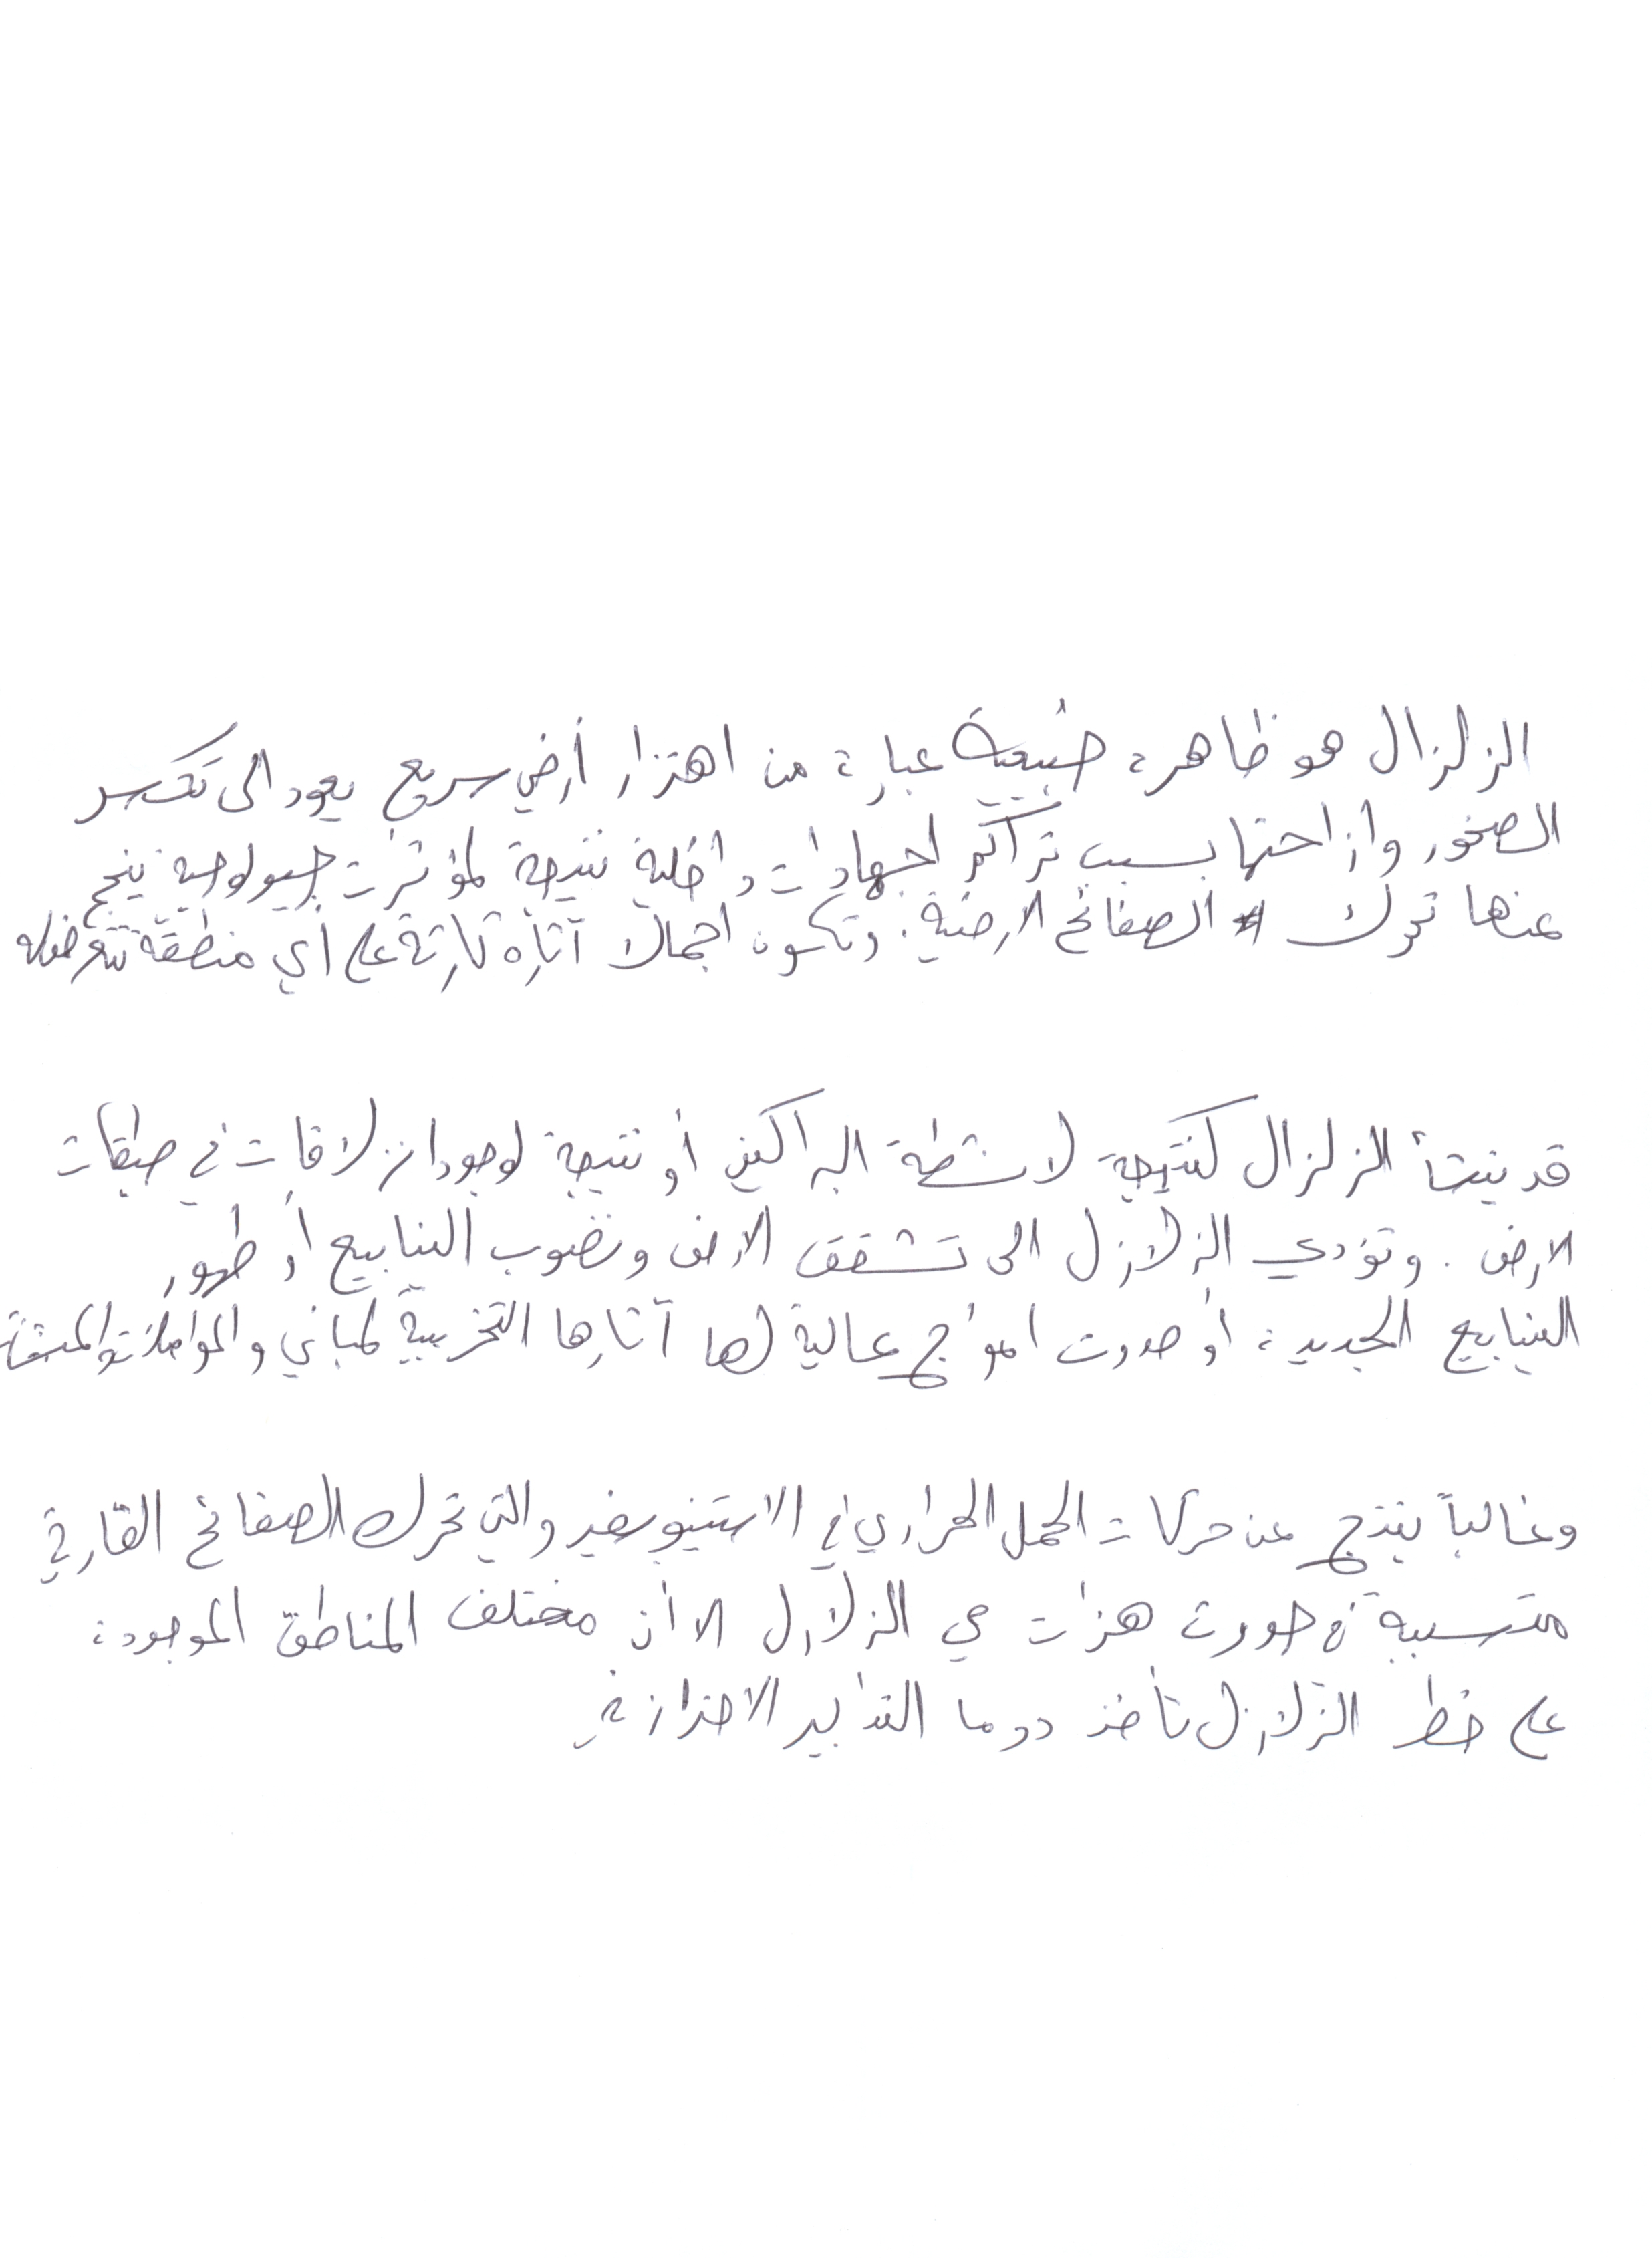 الزلزال هو ظاهرة طبيعية عبارة من اهتزاز أرضي سريع يعود الى تكسر
الصخور وازاحتها بسبب تراكم اجهادات داخلية نتيجة لمؤثرات جيولوجية ينجح
عنها تحرك الصفائح الارضية. وتكون اجمالا آثاره كارثة على أي منطقة تتعرض له
قد ينشأ الزلزال كنتيجة لانشطة البراكين أو نتيجة لوجود انزلاقات في طبقات
الارض . وتؤدي الزلازل الى تشقق الارض ونضوب الينابيع أو ظهور
الينابيع الجديدة أو حدوث امواج عالية لها آثارها التخريبية لمباني والمواصلات والمنشآت
وغالباً ينتج عن حركات الحمل الحراري في الاستينوسفير والتي تحرك الصفائح القارية
متسببة في حدوث هزات هي الزلازل الا أن مختلف المناطق الموجودة
على خط الزلازل تأخذ دوما التدابير الاحترازية